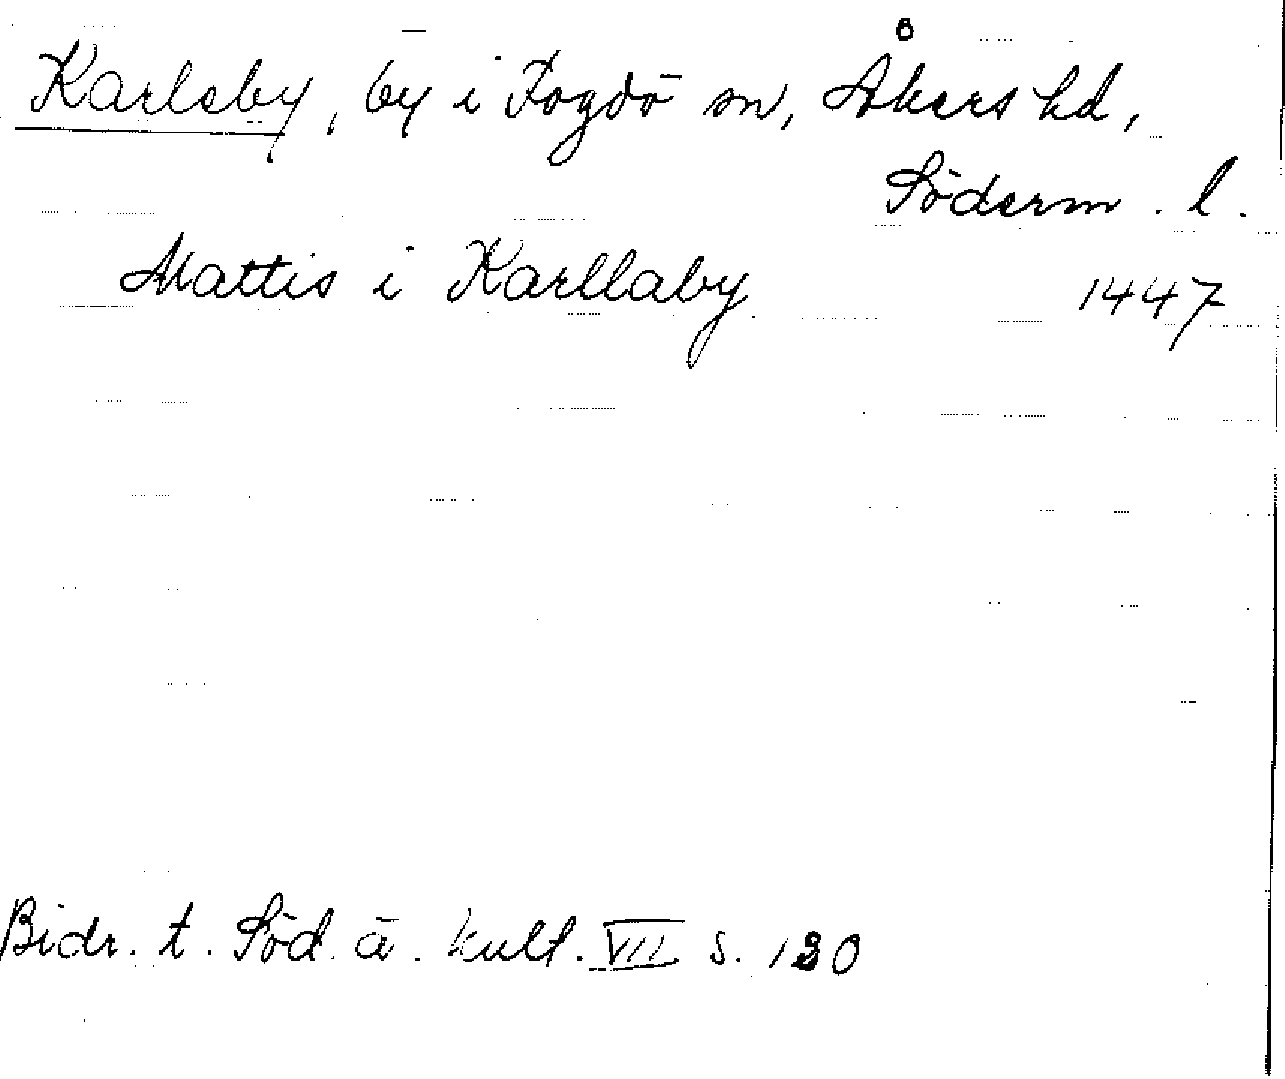 Karleby, by i Fogdö sn, Åkers hd,
Söderm. l.
Mattis i Karllaby 1447
Bidr. t. Söd. ä. kult. VII s. 120